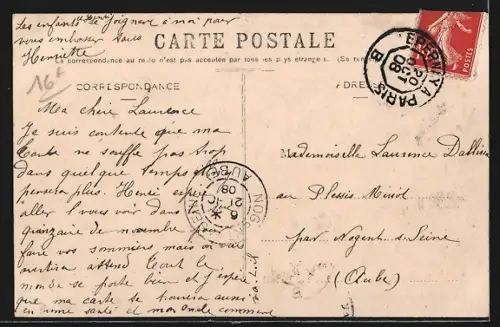 Les enfants se joignent à moi pour
vous embrasser tous
Henriette
CARTE POSTALE
La correspondance au recto n'est pas acceptée par tous les pays étrangers. (Se
16f
CORRESPONDANCE
Ma chère Laurence
Je suis contente que ma
tante ne souffre pas trop
dans quelque temps
passera plus. Henri espère
aller vous voir dans
quinzaine de novembre
faire vos sommiers mais on vous
avertira attend tout le
monde se porte bien et j'espère
que ma carte te trouvera aussi
en bonne santé et mon oncle comment
va-t-il
EPERNAY A PARIS
20
OCT
08
B
POSTES
NOG
AUBE
6
21
08
Mademoiselle Laurence
au Plessis
par Nogent s/Seine
(Aube)